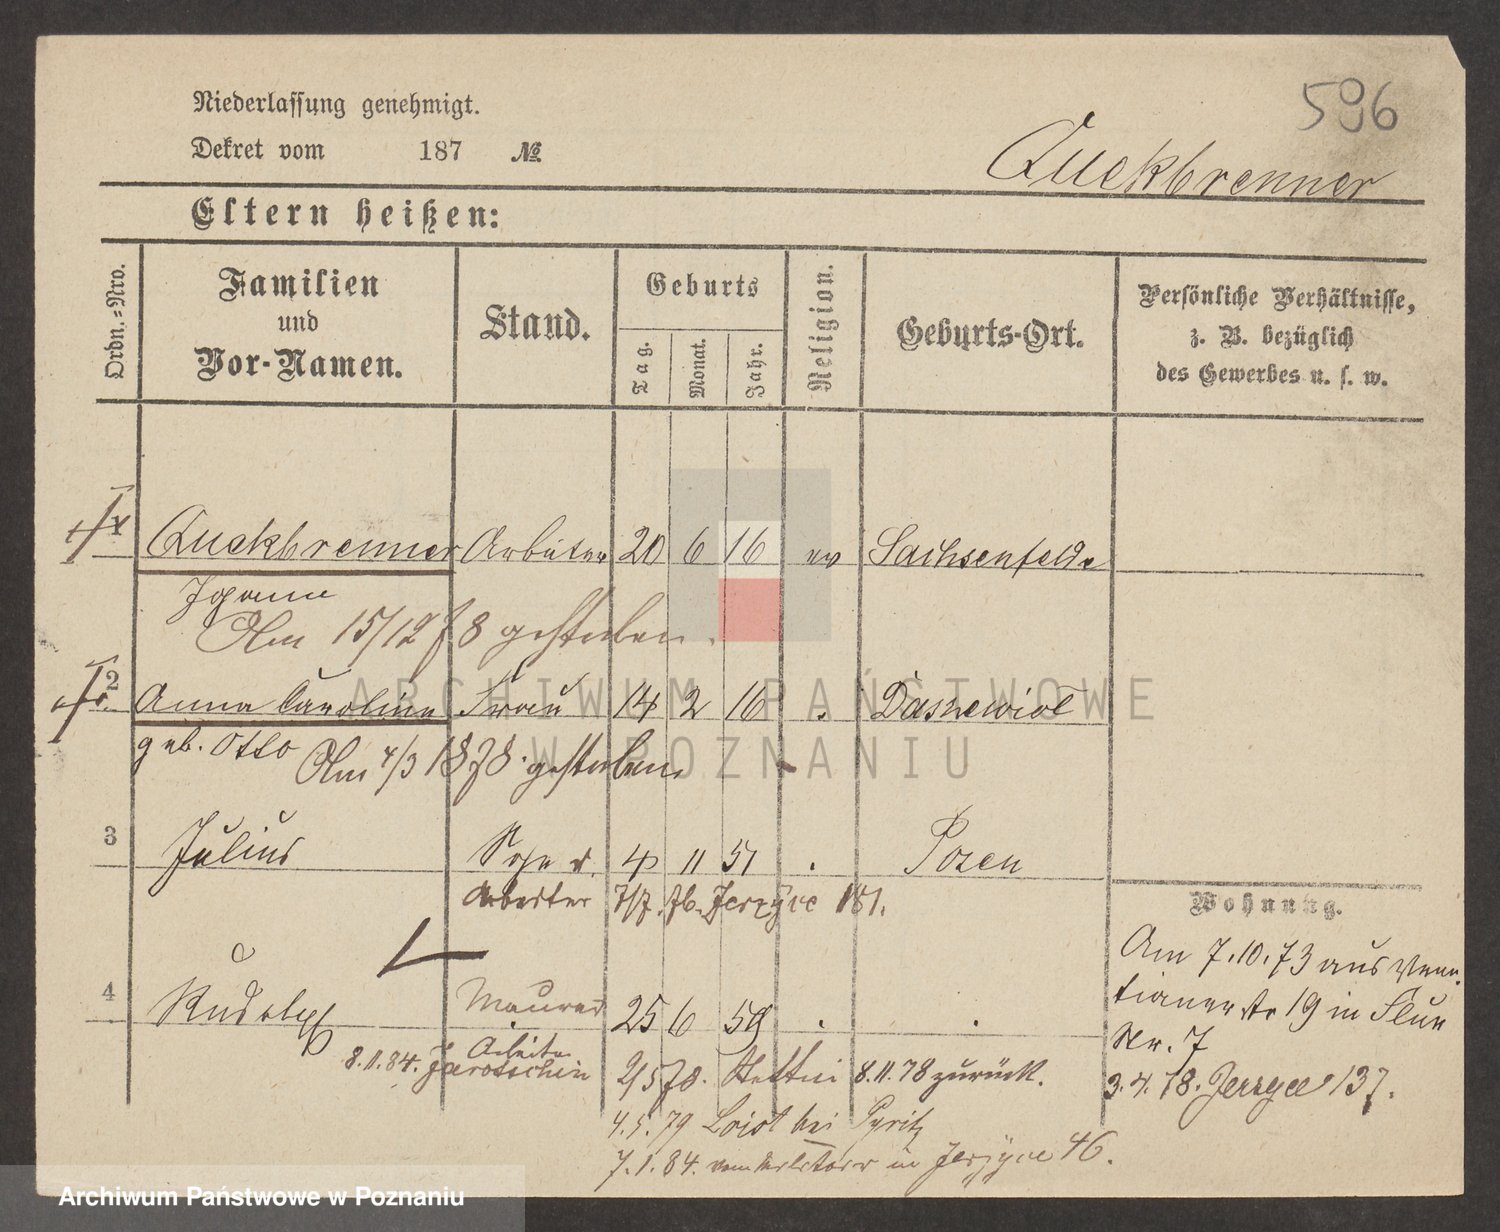 596
Niederlassung genehmigt.
Dekret vom 187 №
Quckbrenner
Eltern heißen:
Ordn.=Nro.
Familien und Vor-Namen.
Stand.
Geburts
Tag. Monat. Jahr.
Religion.
Geburts-Ort.
Persönliche Verhältnisse, z. B. bezüglich des Gewerbes u. s. w.
Quckbrenner Arbeiter 20 6 16 ev Sachsenfelde
Johann
Am 15/12 78 gestorben.
2 Anna Caroline Frau 14 2 16 Daszewice
geb. Otto Am 4/3 1878 gestorben
3 Julius Sohn 4 11 51 Posen
Arbeiter 7/7. 76. Jerzyce 181.
Wohnung.
Am 7.10.73 aus
19 in
Nr. 7
3.4.78. Jerzyce 137.
4 Rudolph Maurer 25 6 59
Arbeiter
8.11.84. Jarotschin 2/5 78. Stettin 8.11.78 zurück.
4.5.79 Loist bei Pyritz
7.1.84. in Jerzyce 46.
ARCHIWUM PAŃSTWOWE
W POZNANIU
Archiwum Państwowe w Poznaniu